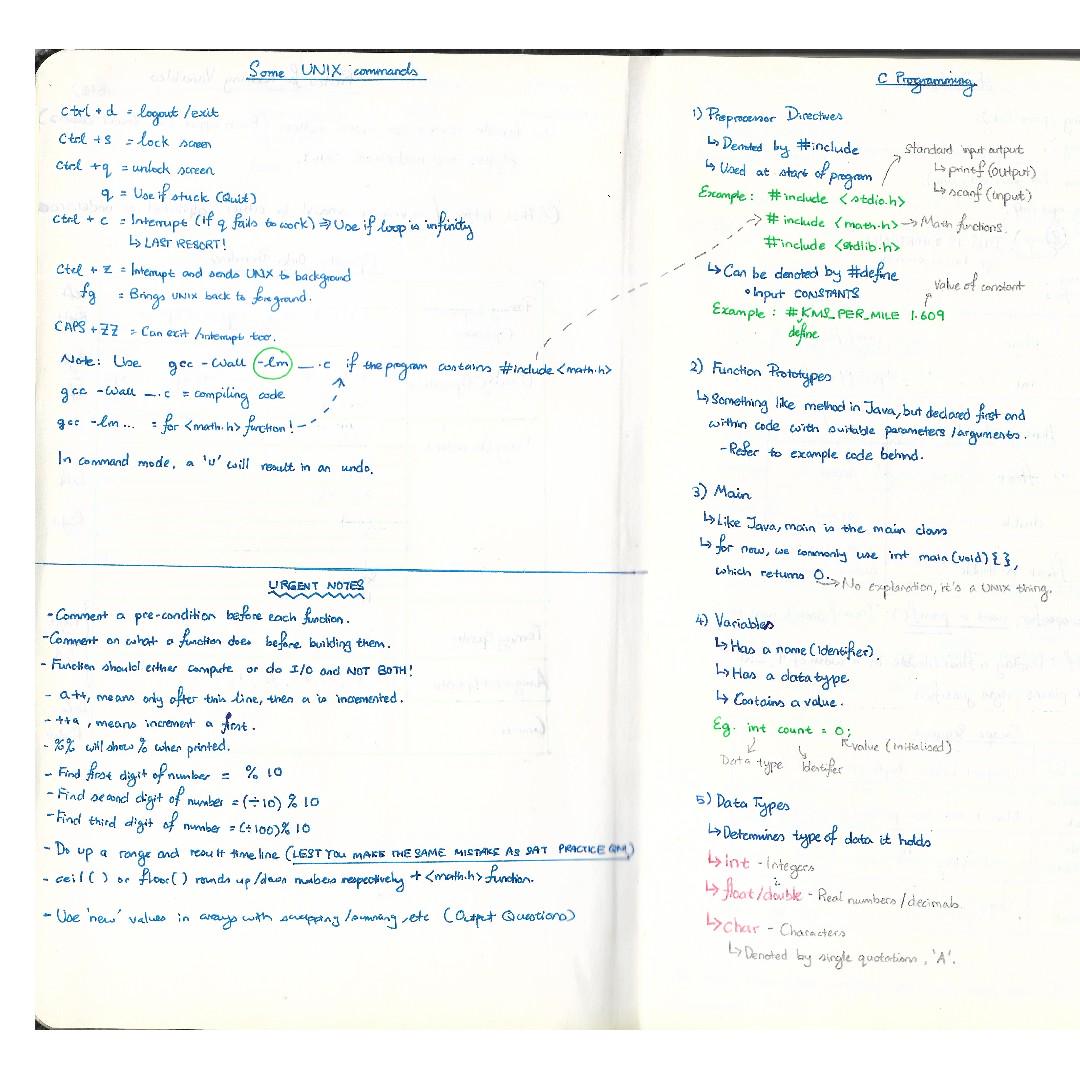 Some UNIX commands
Ctrl + d = logout/exit
Ctrl + s = lock screen
Ctrl + q = unlock screen
q = Use if stuck (Quit)
Ctrl + c = Interrupt (If q fails to work) ⇒ Use if loop is infinity
↳ LAST RESORT!
Ctrl + z = Interrupt and sends UNIX to background
fg = Brings UNIX back to foreground.
CAPS + ZZ = Can exit/interrupt too.
Note: Use gcc -Wall -lm __.c if the program contains #include <math.h>
gcc -Wall __.c = compiling code
gcc -lm... = for <math.h> function!
In command mode, a 'u' will result in an undo.
URGENT NOTES
- Comment a pre-condition before each function.
- Comment on what a function does before building them.
- Function should either compute or do I/O and NOT BOTH!
- a++, means only after this line, then a is incremented.
- ++a, means increment a first.
- %% will show % when printed.
- Find first digit of number = % 10
- Find second digit of number = (÷10) % 10
- Find third digit of number = (÷100) % 10
- Do up a range and result timeline (LEST YOU MAKE THE SAME MISTAKE AS SAT PRACTICE QN)
- ceil() or floor() rounds up/down numbers respectively + <math.h> function.
- Use 'new' values in arrays with swapping/summing, etc (Output Questions)
C Programming
1) Preprocessor Directives
↳ Denoted by #include
Standard input output
↳ Used at start of program
↳ printf (output)
↳ scanf (input)
Example: #include <stdio.h>
#include <math.h> → Math functions
#include <stdlib.h>
↳ Can be denoted by #define
• Input CONSTANTS
Value of constant
Example: # KMS_PER_MILE 1.609
define
2) Function Prototypes
↳ Something like method in Java, but declared first and
within code with suitable parameters/arguments.
- Refer to example code behind.
3) Main
↳ Like Java, main is the main class
↳ for now, we commonly use int main(void) { },
which returns 0.
→ No explanation, it's a UNIX thing.
4) Variables
↳ Has a name (Identifier)
↳ Has a data type
↳ Contains a value.
Eg. int count = 0;
value (initialised)
Data type Identifer
5) Data Types
↳ Determines type of data it holds
↳ int - Integers
↳ float/double - Real numbers/decimals
↳ char - Characters
↳ Denoted by single quotations, 'A'.